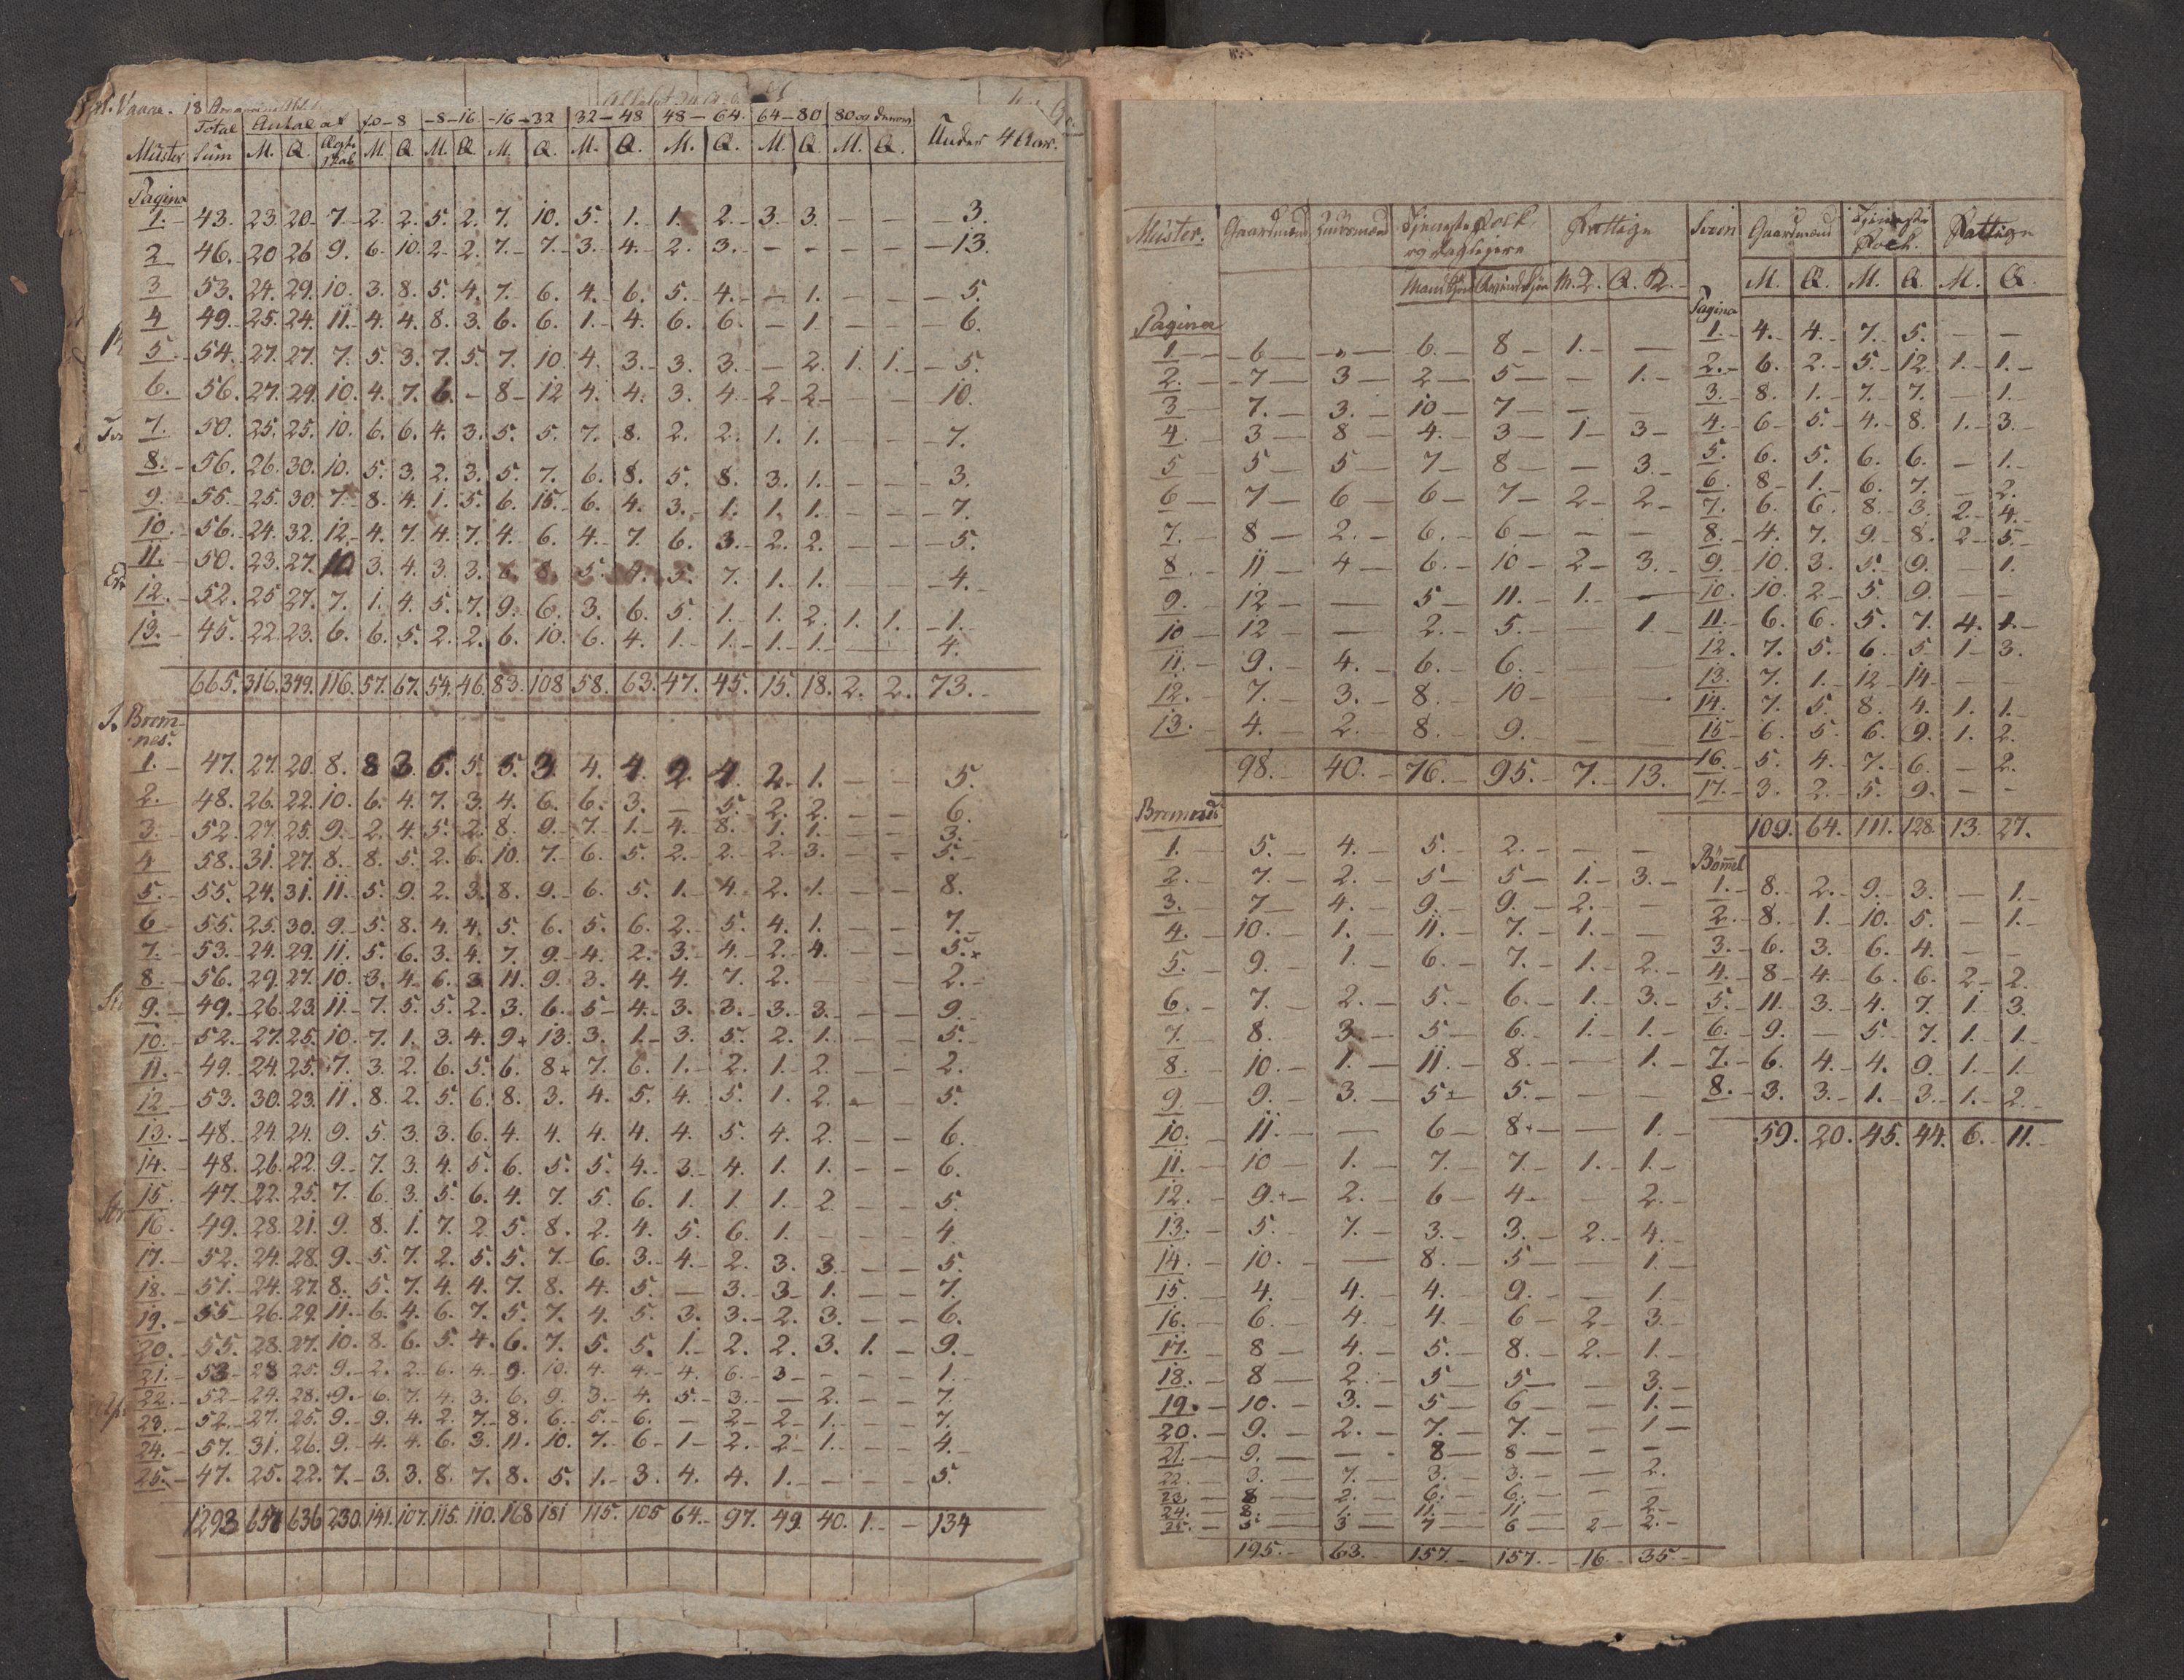 Total Antal af fo-8 -8-16 -16-32 32-48 48-64. 64-80 80 og derover Under 4 Aar.
Mùster Sum M. Q. M. Q. M. Q. M. Q. M. Q. M. Q. M. Q. M. Q.
Pagina
1. 43. 23. 20. 7. 2. 2. 5. 2. 7. 10. 5. 1. 1. 2. 3. 3. — — 3.
2 46. 20 26 9. 6. 10. 2. 2. 7. 7. 3. 4. 2. 3. - - - - 13.
3 53. 24. 29. 10. 3. 8. 5. 4. 7. 6. 4. 6. 5. 4. — 1. — — 5.
4 49. 25. 24. 11. 4. 4. 8. 3. 6. 6. 1. 4. 6. 6. — 1. — — 6.
5. 54. 27. 27. 7. 5. 3. 7. 5. 7. 10. 4. 3. 3. 3. — 2. 1. 1. 5.
6. 56. 27. 29. 10. 4. 7. 6. - 8 12 4. 4. 3. 4. 2 2 — — 10.
7. 50. 25. 25. 10. 6. 6. 4. 3. 5. 5. 7. 8. 2. 2. 1. 1. — — 7.
8. 56. 26. 30. 10. 5. 3. 2. 3. 5. 7. 6. 8. 5. 8. 3. 1. — — 3.
9. 55. 25. 30. 7. 8. 4. 1. 5. 6. 15. 6. 4. 3. 1. 1. 1. — — 7.
10. 56. 24. 32. 12. 4. 7. 4. 7. 4. 6. 4. 7. 6. 3. 2. 2. — — 5.
11. 50. 23. 27. 10 3. 4. 3. 3. 5. 5. 7. 1. 1. — — 4.
12. 52. 25 27. 7. 1. 4. 5. 7. 9. 6. 3. 6. 5. 1. 1. 2. 1. 1. 1.
13. 45. 22. 23. 6. 6. 5. 2. 2. 6. 10. 6. 4. 1. 1. 1. 1. — — 4.
665. 316. 349. 116. 57. 67. 54. 46. 83. 108 58. 63. 47. 45. 15. 18. 2. 2. 73.
Brem-
nes.
1. 47. 27. 20. 8. 8 3. 6. 5. 5. 3. 4. 4. 2 4. 2. 1. — — 5.
2. 48. 26. 22. 10. 6. 4. 7. 3. 4. 6. 6. 3. — 5. 2. 2. — — 6.
3. 52. 27. 25. 9. 2. 4. 5. 2. 8. 9. 7. 1. 4. 8. 1. 1. — — 3.
4 58. 31. 27. 8. 8. 5. 2. 6. 10. 7. 6. 5. 2. 2. 2. 3. — - 5.
5. 55. 24. 31. 11. 5. 9. 2. 3. 8. 9. 6. 5. 1. 4. 2. 1. — — 8.
6 55. 25. 30. 9. 5. 8. 4. 4. 5. 6. 5. 6. 2. 5. 4. 1. — — 7.
7. 53. 24. 29. 11. 5. 6. 3. 4. 7. 9. 4. 2. 3. 4. 2. 4. — — 5.+
8 56. 29. 27. 10. 3. 4. 6. 3 11. 9. 3. 4. 4. 7. 2. — — 2.
9. 49. 26. 23. 11. 7. 5. 5. 2. 3. 6. 5 4. 3. 3. 3. 3. — — 9.
10. 52. 27. 25. 10. 7. 1. 3. 4. 9+ 13. 3. 1. 3. 5. 2. 1. — — 5.
11. 49. 24. 25. 7. 3. 2. 6. 5. 6. 8+ 7. 6. 1. 2. 1. 2. — — 2.
12 53. 30. 23. 11. 8. 2. 5. 6. 8. 3. 4. 5. 4. 5. 1. 2. - — 5.
13. 48. 24. 24. 9. 5. 3. 3. 6. 4. 4. 4. 4. 4. 5. 4. 2. — — 6.
14. 48. 26. 22. 9. 7. 3. 4. 5. 6. 5. 5. 4. 3. 4. 1. 1. — — 6.
15. 47. 22. 25. 7. 6. 3. 5. 6. 4. 7. 5. 6. 1. 1. 1. 2. — — 5.
16. 49. 28. 21. 9. 8. 1. 7. 2. 5. 8. 2. 4. 5. 6. 1. — — — 4.
17. 52. 24. 28. 9. 5. 7. 2. 5. 5. 7. 6. 3. 4. 2. 3. 3. — — 5.
18. 51. 24. 27. 8. 5. 7. 4. 4. 7. 8. 4. 5. — 3. 3. 1. — — 7.
19. 55 26. 29. 11. 6. 4. 6. 7. 5. 7. 4. 5. 3. 3. 2. 3. — — 6.
20. 55. 28. 27. 10. 8. 6. 5. 4. 6. 7. 5. 5. 1. 2. 2. 3. 1. — 9.
21. 53 28 25. 9. 2. 2. 6. 4. 9. 10. 4. 4. 4. 6. 3 — — — 1.
22. 52 24. 28. 9. 6. 7. 4. 3. 6. 9. 3. 4. 5. 3. — 2. — — 7.
23. 52. 27. 25. 9. 9. 4. 2. 7. 8. 6. 5. 6. — 2 2 1. — — 7.
24. 57. 31. 26. 9. 4. 4. 6. 3. 11. 10. 7. 6 1 2. 2 1. — — 4.
25. 47. 25. 22. 7. 3. 3. 8. 7. 8. 5. 1. 3. 4. 4. 1. — — — 5.
1293 657 636 230. 141. 107. 115. 110. 168 181 115. 105 64. 97. 49 40. 1. — 134
Mùster. Gaardmænd Huusmænd Tjeneste Folk Fattige
og Daglejere
M. Q.
Pagina
1 6 — 6. 8 1. —
2. 7 3 2 5 — 1.
3 7. 3. 10 7 — —
4. 3 8 4. 3 1 3
5 5 5 7 8 — 3.
6 7 6 6 7 2 2
7. 8 2. 6. 6 — —
8 11 4 6. 10 2 3.
9. 12 — 5 11. 1. —
10 12 — 2. 5. — 1
11. 9. 4. 6. 6. — —
12. 7. 3. 8. 10 — —
13. 4. 2. 8. 9. — —
98. 40. 76. 95. 7. 13.
Bremnes
1. 5. 4. 5. 2. — —
2. 7. 2. 5 5 1. 3.
3. 7 4. 9. 9. 2. —
4. 10. 1. 11. 7. 1. —
5. 9. 1. 6. 7. 1. 2.
6. 7. 2. 5. 6. 1. 3.
7. 8. 3. 5 6. 1. 1.
8. 10. 1. 11. 8. — 1.
9 9. 3. 5+ 5. — —
10. 11. — 6 8+ — 1.
11. 10 1. 7. 7. 1. 1.
12. 9.+ 2. 6 4 — 2.
13. 5. 7. 3. 3. 2. 4.
14. 10. — 8. 5 — 1.
15. 4. 4. 4. 9. — 1.
16. 6. 4 4. 6 2 3
17. 8 4. 5. 8. 2. 1.
18. 8 2. 5 5 — 3.
19. 10. 3. 5 6 — 1.
20. 9. 2. 7. 7. — 1
21. 9. — 8 8 — —
22. 3. 7. 3. 3. — 2.
23. 8 2. 6. 6. — —
24. 8. 1. 11. 11. — 2
25. 5 3 7 6 2 2.
195. 63. 157. 157. 16 35
Sveen Gaardmænd Tjeneste Fattige
Folk.
M. Q. M. Q. M. Q.
Pagina
1. 4. 4. 7. 5. — —
2. 6. 2. 5. 12 1. 1.
3. 8. 1. 7. 7. — 1.
4. 6 5. 4. 8. 1. 3.
5. 6. 5. 6. 6. — 1.
6. 8 1. 6. 7. — 2.
7. 6. 6. 8. 3. 2. 4.
8. 4. 7. 9. 8. 2 5.
9. 10. 3. 5. 9. — 1.
10. 10. 2 5. 9. — —
11. 6. 6. 5. 7. 4. 1.
12. 7. 5. 6. 5 1 3.
13. 7. 1. 12 14 — —
14. 7. 5. 8. 4. 1. 1.
15 6. 5. 6. 9. 1. 2.
16. 5. 4. 7. 6. — 2.
17. 3. 2. 5. 9. — —
109. 64. 111. 128. 13. 27.
Bömel
1. 8. 2. 9. 3. — 1.
2. 8. 1. 10. 5. — 1.
3. 6. 3. 6. 4. — —
4. 8 4. 6 6. 2 2.
5. 11. 3. 4. 7. 1. 3.
6. 9. — 5. 7. 1. 1.
7. 6. 4. 4. 9. 1. 1.
8. 3. 3. 1. 3. 1. 2.
59. 20. 45. 44. 6. 11.